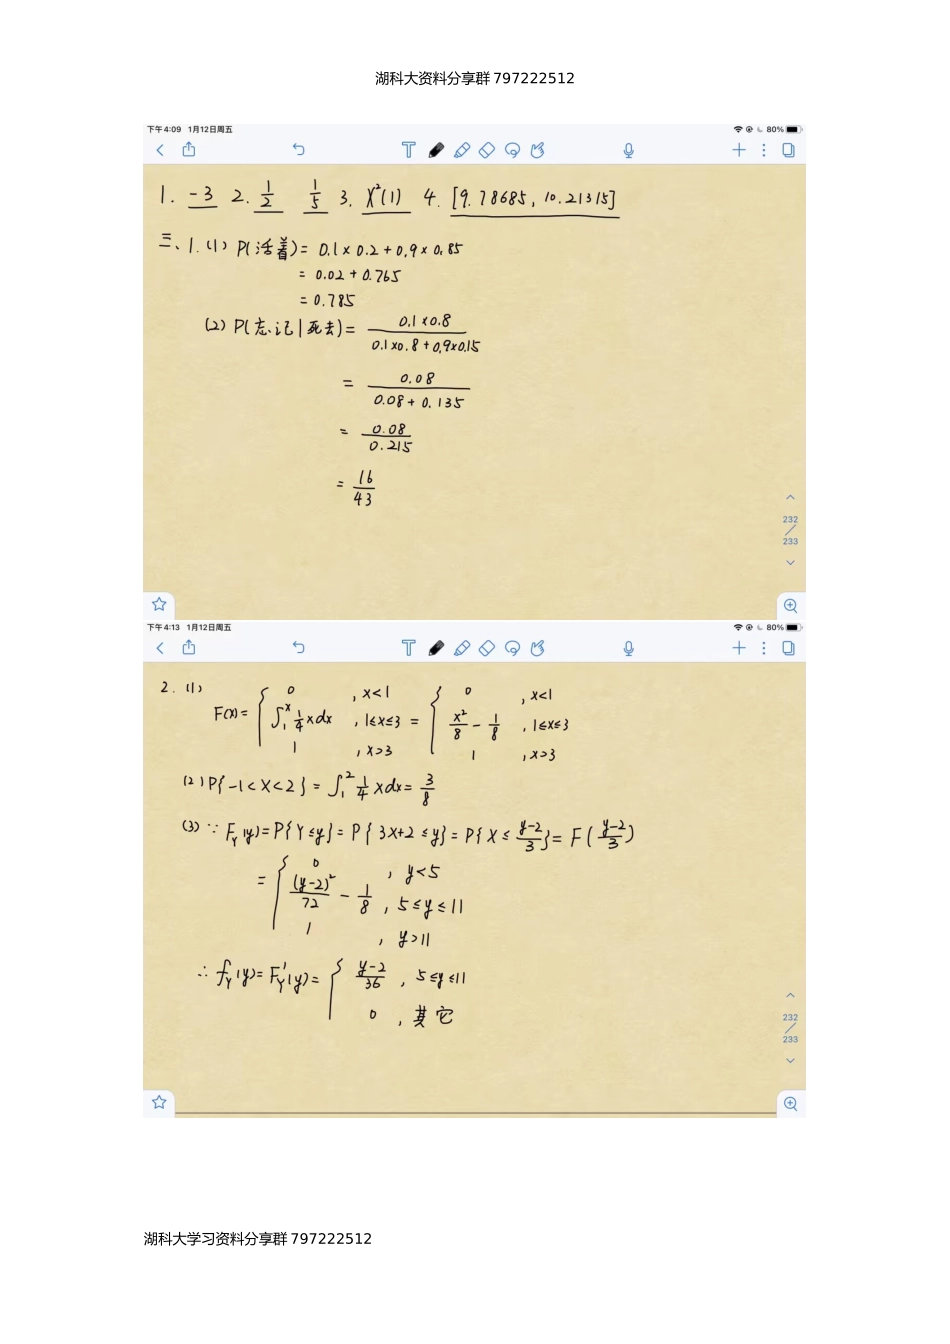 湖科大资料分享群 797222512
下午4:09 1月12日周五 80%
1. -3 2. 1/2 1/5 3. χ²(1) 4. [9.78685, 10.21315]
三、1.(1) P(活着)= 0.1×0.2+0.9×0.85
= 0.02+0.765
= 0.785
(2) P(忘记|死去)= 0.1×0.8 / 0.1×0.8+0.9×0.15
= 0.08 / 0.08+0.135
= 0.08 / 0.215
= 16/43
232
/
233
下午4:13 1月12日周五 80%
2. (1) F(x)= { 0 , x<1 = { 0 , x<1
∫₁ˣ 1/4 xdx , 1≤x≤3 x²/8 - 1/8 , 1≤x≤3
1 , x>3 1 , x>3
(2) P{-1<X<2} = ∫₁² 1/4 xdx = 3/8
(3) ∵ F_Y(y)=P{Y≤y}=P{3X+2≤y}=P{X≤ y-2/3}= F(y-2/3)
= { 0 , y<5
(y-2)²/72 - 1/8 , 5≤y≤11
1 , y>11
∴ f_Y(y)=F_Y'(y)= { y-2/36 , 5≤y≤11
0 , 其它
232
/
233
湖科大学习资料分享群 797222512